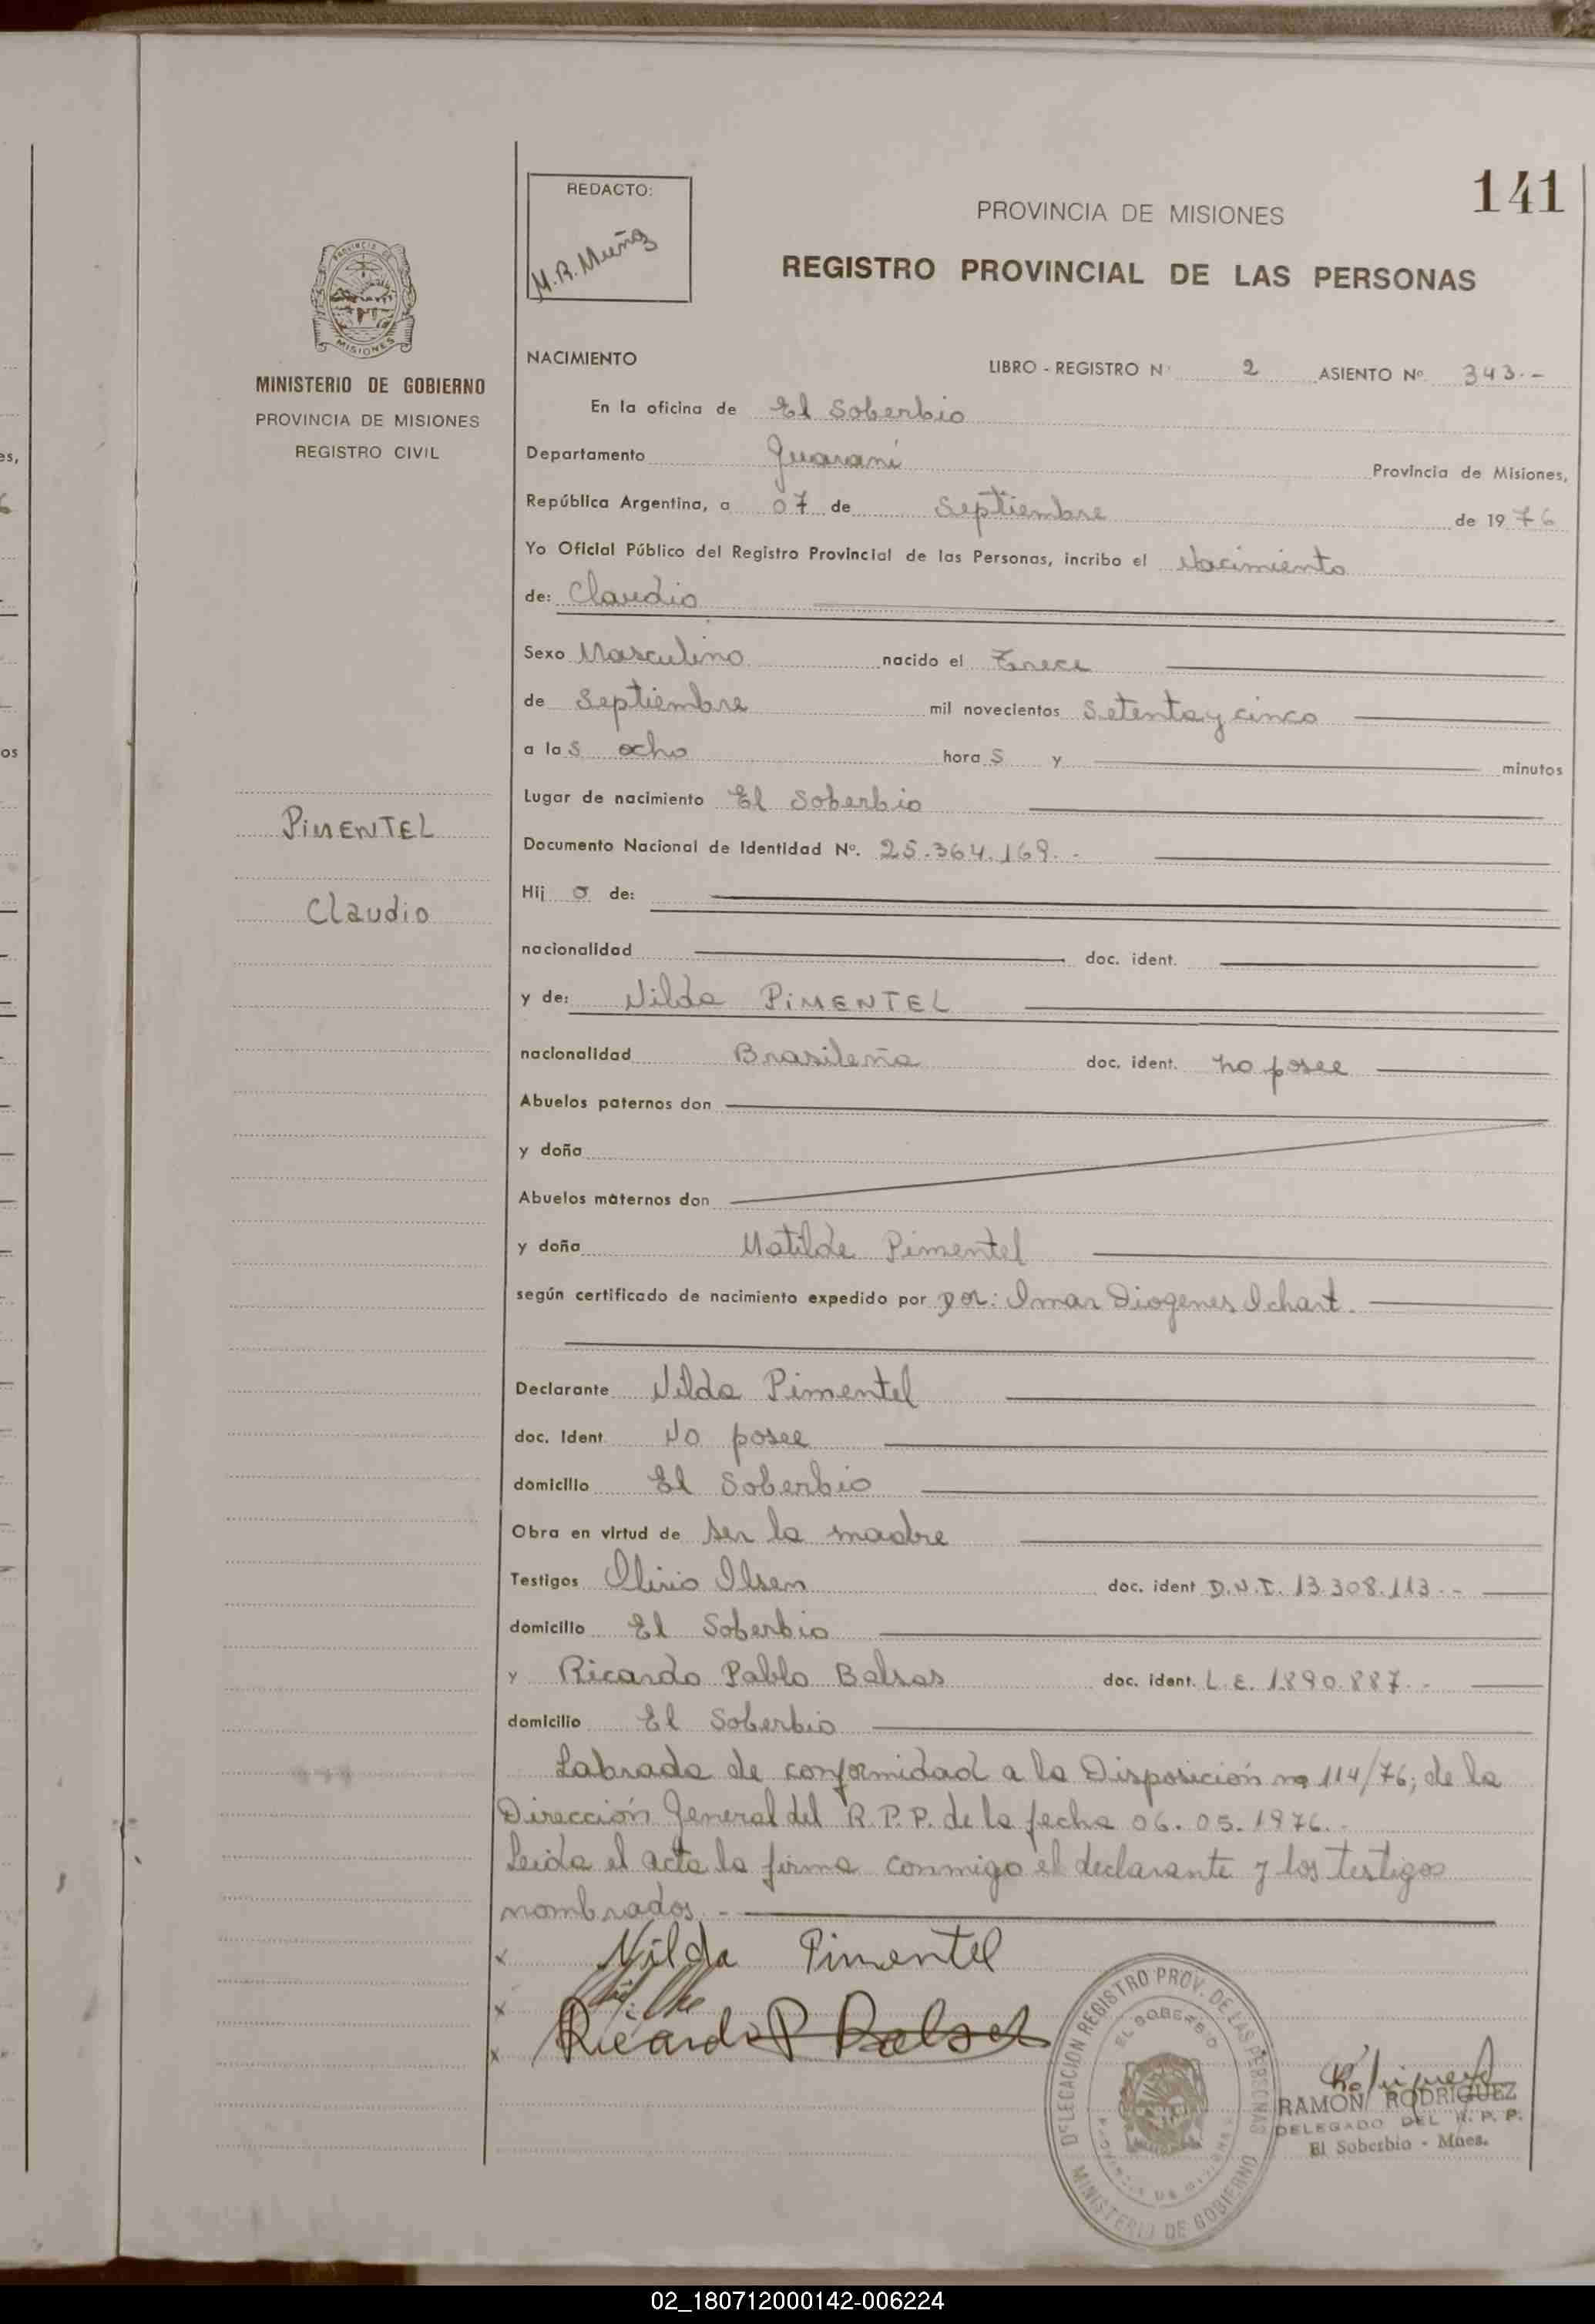 141
REDACTO:
M.R. Muñoz
PROVINCIA DE MISIONES
REGISTRO PROVINCIAL DE LAS PERSONAS
PROVINCIA DE
MISIONES
MINISTERIO DE GOBIERNO
PROVINCIA DE MISIONES
REGISTRO CIVIL
PiMENTEL
Claudio
NACIMIENTO LIBRO - REGISTRO N° 2 ASIENTO Nº. 343.-
En la oficina de El Soberbio
Departamento Guarani Provincia de Misiones,
República Argentina, a 07 de Septiembre de 1976
Yo Oficial Público del Registro Provincial de las Personas, incribo el Nacimiento
de: Claudio
Sexo Masculino nacido el Trece
de Septiembre mil novecientos Setenta y cinco
a las ocho horas y minutos
Lugar de nacimiento El Soberbio
Documento Nacional de Identidad Nº. 25.364.169.-
Hijo de:
nacionalidad doc. ident.
y de: Nilda PiMENTEL
nacionalidad Brasileña doc. ident. no posee
Abuelos paternos don
y doña
Abuelos maternos don
y doña Matilde Pimentel
según certificado de nacimiento expedido por por: Omar Diogenes Ichart.
Declarante Nilda Pimentel
doc. Ident. No posee
domicilio El Soberbio
Obra en virtud de ser la madre
Testigos Olirio Olsen doc. ident D.N.I. 13.308.113.-
domicilio El Soberbio
y Ricardo Pablo Balsas doc. ident. L.E. 1.890.887.-
domicilio El Soberbio
Labrada de conformidad a la Disposición nº 114/76; de la
Dirección General del R.P.P. de la fecha 06.05.1976.-
Leida el acta la firma conmigo el declarante y los testigos
nombrados.-
x Nilda Pimentel
x
x Ricardo P Balsas
DELEGACION REGISTRO PROV. DE LAS PERSONAS
EL SOBERBIO
PROVINCIA DE MISIONES
MINISTERIO DE GOBIERNO
RAMON RODRIGUEZ
DELEGADO DEL R. P. P.
El Soberbio - Mnes.
02_180712000142-006224